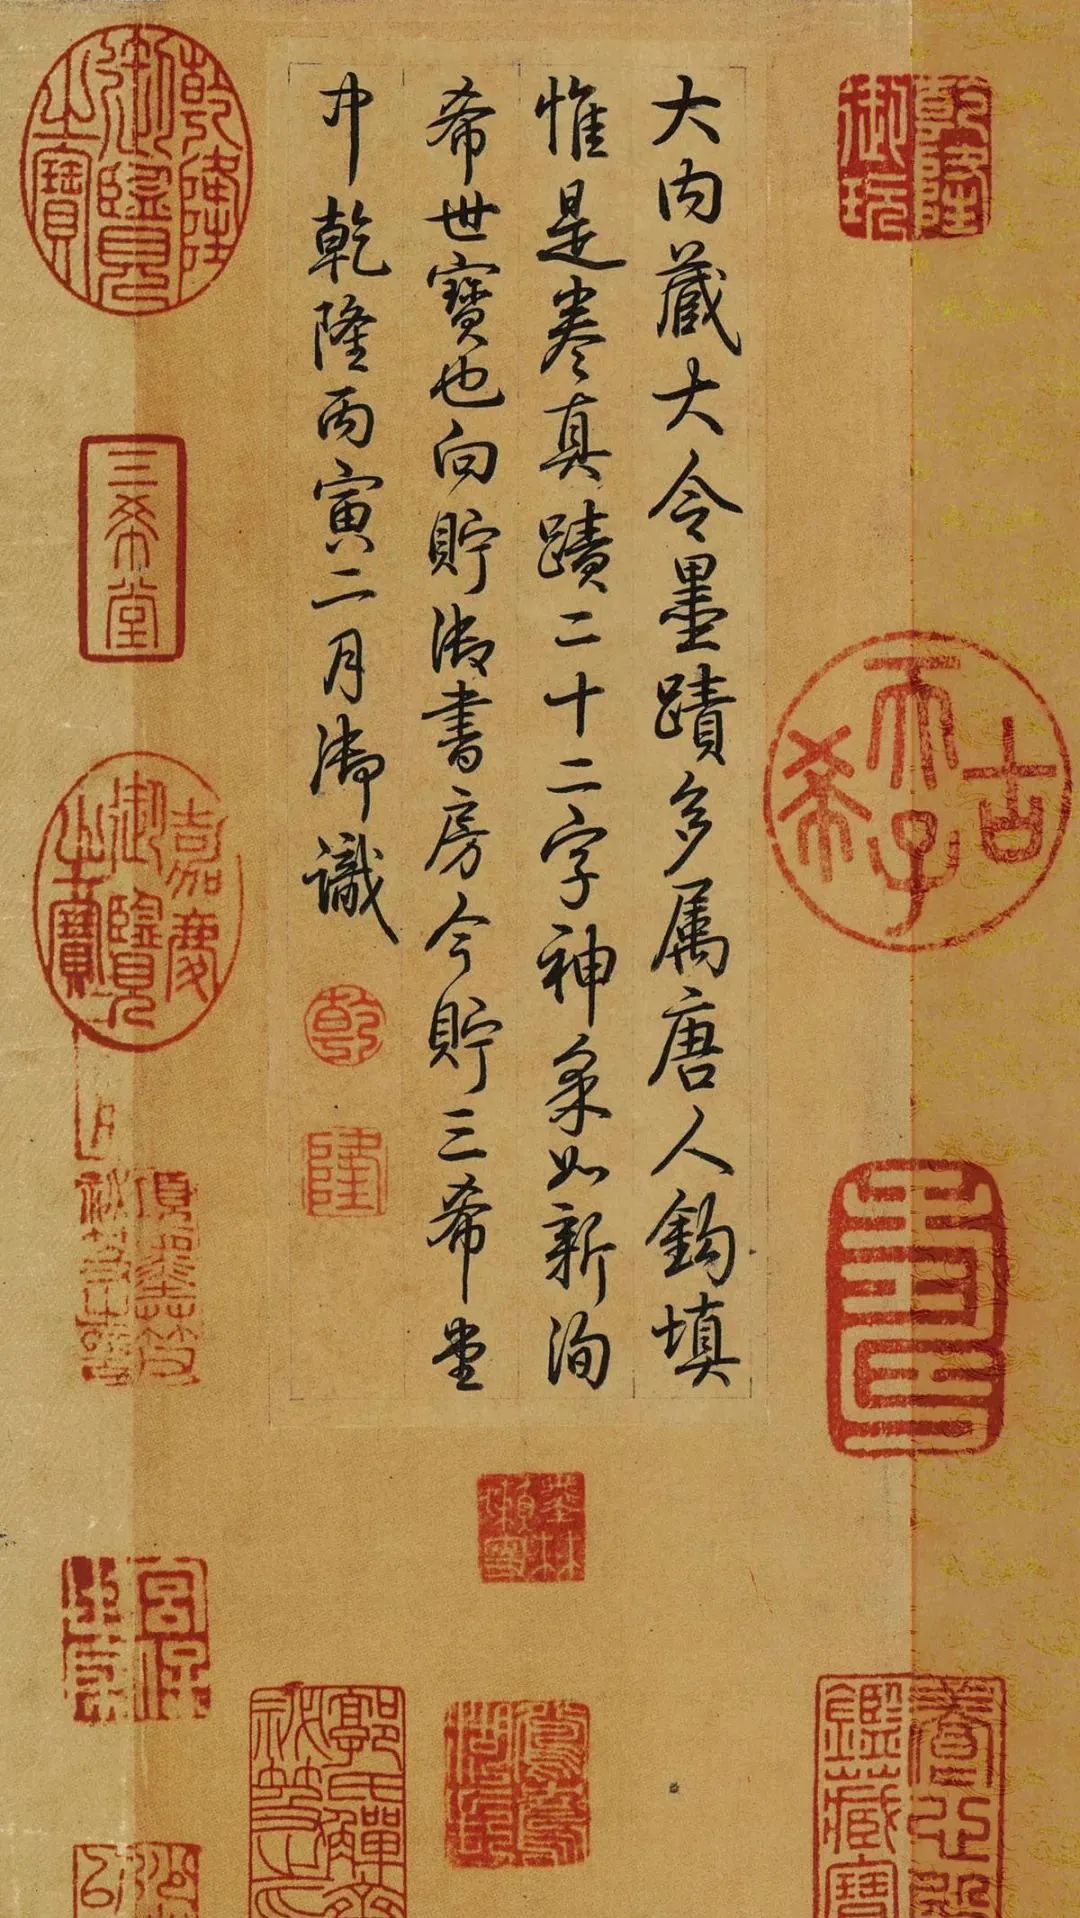 大内藏大令墨蹟多属唐人鈎填
惟是卷真蹟二十二字神采如新洵
希世寶也向貯御書房今貯三希堂
中乾隆丙寅二月御識
乾
隆
乾隆御玩
古希天子
乾隆御覽之寶
三希堂
嘉慶御覽之寶
項墨林父祕笈之印
宮保